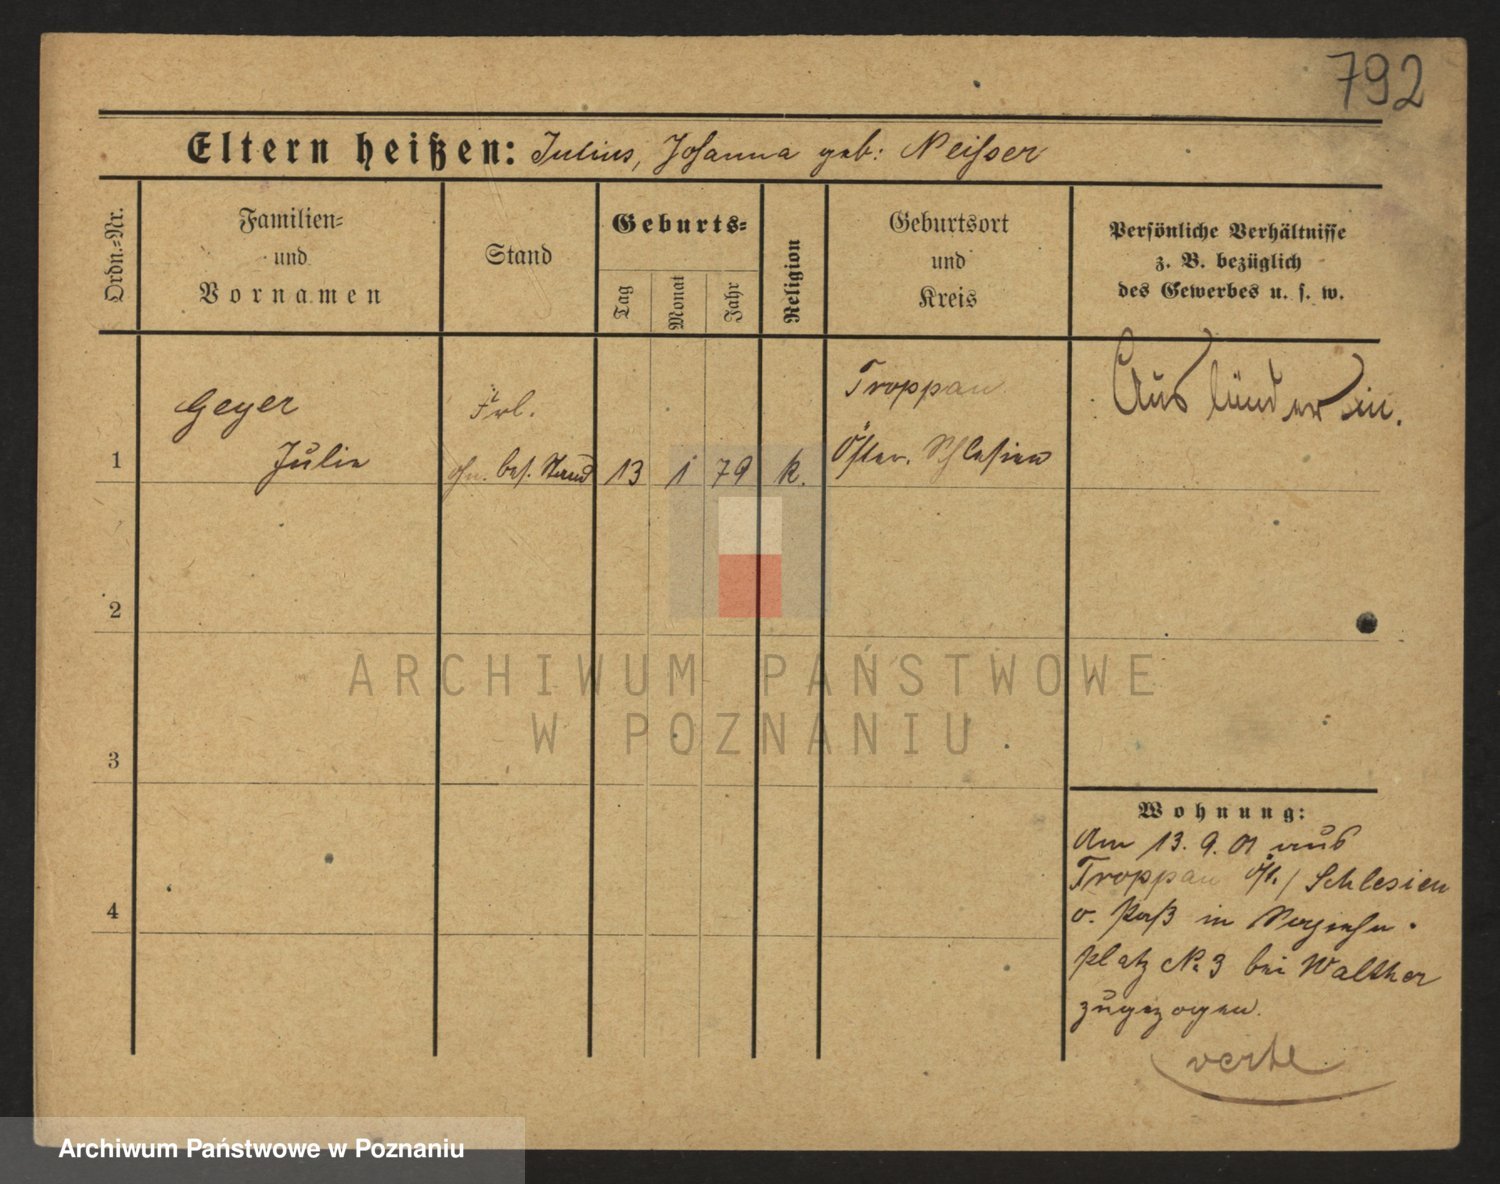 792
Eltern heißen: Julius, Johanna geb: Neisser
Ordn.=Nr.
Familien=
und
Vornamen
Stand
Geburts=
Tag
Monat
Jahr
Religion
Geburtsort
und
Kreis
Persönliche Verhältnisse
z. B. bezüglich
des Gewerbes u. s. w.
1
Geyer
Julie
Frl.
oh. bes. Stand
13
1
79
k.
Troppau
Öster. Schlesien
Ausländerin.
2
3
4
Wohnung:
Am 13. 9. 01 aus
Troppau Öst./ Schlesien
o. Paß in
platz No 3 bei Walther
zugezogen.
verte
ARCHIWUM PAŃSTWOWE
W POZNANIU
Archiwum Państwowe w Poznaniu